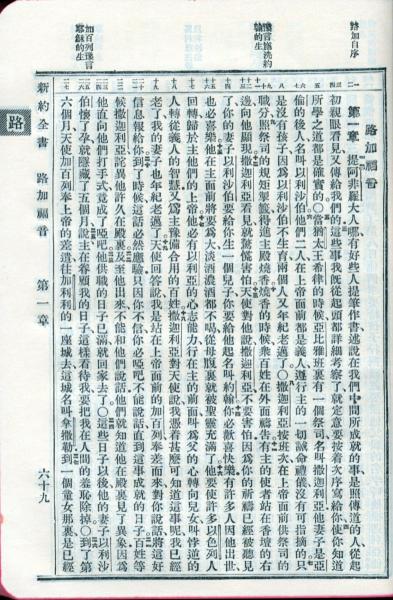 路加自序
翰的生
加百列豫言
耶穌的生
路加福音
第一章 提阿非羅大人哪有好些人提筆作書述說在我們中間所成就的事是照傳道的人從起
初親眼看見又傳給我們的這些事我既從起頭都詳細考察了就定意要按着次序寫給你使你知道
所學之道都是確實的○當猶太王希律的時候亞比雅班裏有一個祭司名叫撒迦利亞他妻子是亞
倫的後人名叫以利沙伯他們二人在上帝面前都是義人遵行主的一切誡命禮儀沒有可指摘的只
是沒有孩子因爲以利沙伯不生育兩個人又年紀老邁了○撒迦利亞按班次在上帝面前供祭司的
職分照祭司的規矩掣籤得進主殿燒香燒香的時候衆百姓在外面禱告有主的使者站在香壇的右
邊向他顯現撒迦利亞看見就驚慌害怕天使對他說撒迦利亞不要害怕因爲你的祈禱已經被聽見
了你的妻子以利沙伯要給你生一個兒子你要給他起名叫約翰你必歡喜快樂有許多人因他出世
也必喜樂他在主面前將要爲大淡酒濃酒都不喝從母腹裏就被聖靈充滿了他要使許多以色列人
回轉歸於主他們的上帝他必有以利亞的心志能力行在主的前面叫爲父的心轉向兒女叫悖逆的
人轉從義人的智慧又爲主豫備合用的百姓撒迦利亞對天使說我憑着甚麼可知道這事呢我已經
老了我的妻子也年紀老邁了天使回答說我是站在上帝面前的加百列奉差來對你說話將這好
信息報給你到了時候這話必然應驗只因你不信你必啞吧不能說話直到這事成就的日子百姓等
候撒迦利亞詫異他許久在殿裏及至他出來不能和他們說話他們就知道他在殿裏見了異象因爲
他直向他們打手式竟成了啞吧他供職的日子已滿就回家去了○這些日子以後他的妻子以利沙
伯懷了孕就隱藏了五個月說主在眷顧我的日子這樣看待我要把我在人間的羞恥除掉○到了第
六個月天使加百列奉上帝的差遣往加利利的一座城去這城名叫拿撒勒到一個童女那裏是已經
新約全書 路加福音 第一章 六十九
路